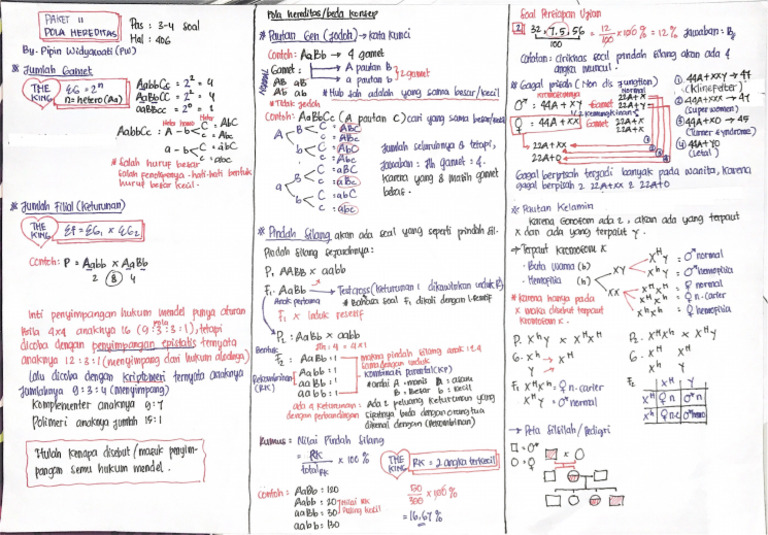 PAKET 11
POLA HEREDITAS
Pas : 3-4 soal
Hal : 406
By. Pipin Widyawati (PW)
* Jumlah Gamet
THE KING
ΣG = 2ⁿ
n = hetero (Aa)
AabbCc = 2² = 4
AaBbCC = 2² = 4
aaBBCc = 2⁰ = 1
AabbCc : A - b < C = AbC
c = Abc
a - b < C = abC
c = abc
* Salah huruf besar
salah fenotipnya - hati-hati bentuk
huruf besar kecil.
* Jumlah Filial (Keturunan)
THE KING
ΣF = ΣG₁ × ΣG₂
Contoh : P = Aabb × AaBb
2 (8) 4
Inti penyimpangan hukum mendel punya aturan
bila 4x4 anaknya 16 (9:3:3:1), tetapi
dicoba dengan penyimpangan epistasis ternyata
anaknya 12:3:1 (menyimpang dari hukum
Lalu dicoba dengan kriptomeri ternyata anaknya
jumlahnya 9:3:4 (menyimpang)
Komplementer anaknya 9:7
Polimeri anaknya jumlah 15:1
Itulah kenapa disebut (masuk penyim-
pangan semu hukum mendel.
Pola hereditas/beda konsep
* Pautan Gen (jodoh) → Kata kunci
Contoh : AaBb → 4 gamet
Gamet : A pautan B
a pautan b } 2 gamet
NORMAL
AB aB
Ab ab
* Hub sah adalah yang sama besar/kecil
* Tidak jodoh
Contoh : AaBbCc (A pautan C) cari yang sama besar/kecil
A B C = ABC
c = ABc
b C = AbC
c = Abc
a B C = aBC
c = aBc
b C = abC
c = abc
Jumlah seluruhnya 8 tetapi,
Jawaban : Jlh gamet = 4.
Karena yang B masih gamet
bebas.
* Pindah Silang akan ada soal yang seperti pindah sil.
Pindah silang sejarahnya :
P₁ AABB × aabb
F₁ AaBb → Testcross (Keturunan 1 dikawinkan untuk F₂)
Anak pertama
* Bahasa soal F₁ dikali dengan resesif
F₁ × induk resesif
P₂ : AaBb × aabb
Jlh : 4 = 4x1
Bentuk :
F₂ : AaBb : 1
Aabb : 1
aaBb : 1
aabb : 1
Rekombinasi (RK)
makna pindah silang anak 1:1
kombinasi parental (KP)
A : manis
B : Besar b : kecil
ada 4 keturunan
dengan perbandingan
Ada 2 peluang keturunan yang
sifatnya beda dengan orang tua
dikenal dengan (Rekombinan)
Rumus : Nilai Pindah Silang
= RK / total RK × 100 %
THE KING
RK = 2 angka terkecil
Contoh : AaBb : 120
Aabb : 20
aaBb : 30
aabb : 130
Nilai RK
Paling kecil
50/300 × 100 %
= 16,67 %
Soal Persiapan Ujian
2 32 . 7 . 5 . 56 / 100
= 12/100 × 100 % = 12 % Jawaban : B
Catatan : Ciri khas soal pindah silang akan ada 4
angka muncul.
* Gagal pisah (Non disjungtion)
♂ : 44A + XY
Gamet
Normal
22A + X
22A + Y
♀ : 44A + XX
Gamet
2 Kemungkinan
22A + X
22A + X
22A + XX
22A + 0
① 44A + XXY → 47
(Klinefelter)
② 44A + XXX → 47
(Superwomen)
③ 44A + X0 → 45
(Turner syndrome)
④ 44A + Y0
(Letal)
Gagal berpisah terjadi banyak pada wanita, karena
gagal berpisah 2 22A + XX 2 22A + 0
* Pautan Kelamin
Karena Gonosom ada 2, akan ada yang terpaut
X dan ada yang terpaut Y.
→ Terpaut Kromosom X
- Buta Warna (b)
- Hemofilia (h)
XY
XX
XᴴY = ♂ normal
XʰY = ♂ hemophilia
XᴴXᴴ = ♀ normal
XᴴXʰ = ♀ n. carier
XʰXʰ = ♀ hemofilia
* Karena hanya pada
X maka disebut terpaut
Kromosom X.
P₁ XʰY × XᴴXᴴ
G. Xʰ Xᴴ
Y
F₁ XᴴXʰ = ♀ n. carier
XᴴY = ♂ normal
P₂ XᴴXʰ × XᴴY
G. Xᴴ Xᴴ
Xʰ Y
F₂
Xᴴ Y
Xᴴ ♀ n ♂ n
Xʰ ♀ n.c ♂ hemo
→ Peta Silsilah / Pedigri
□ = ♂
○ = ♀